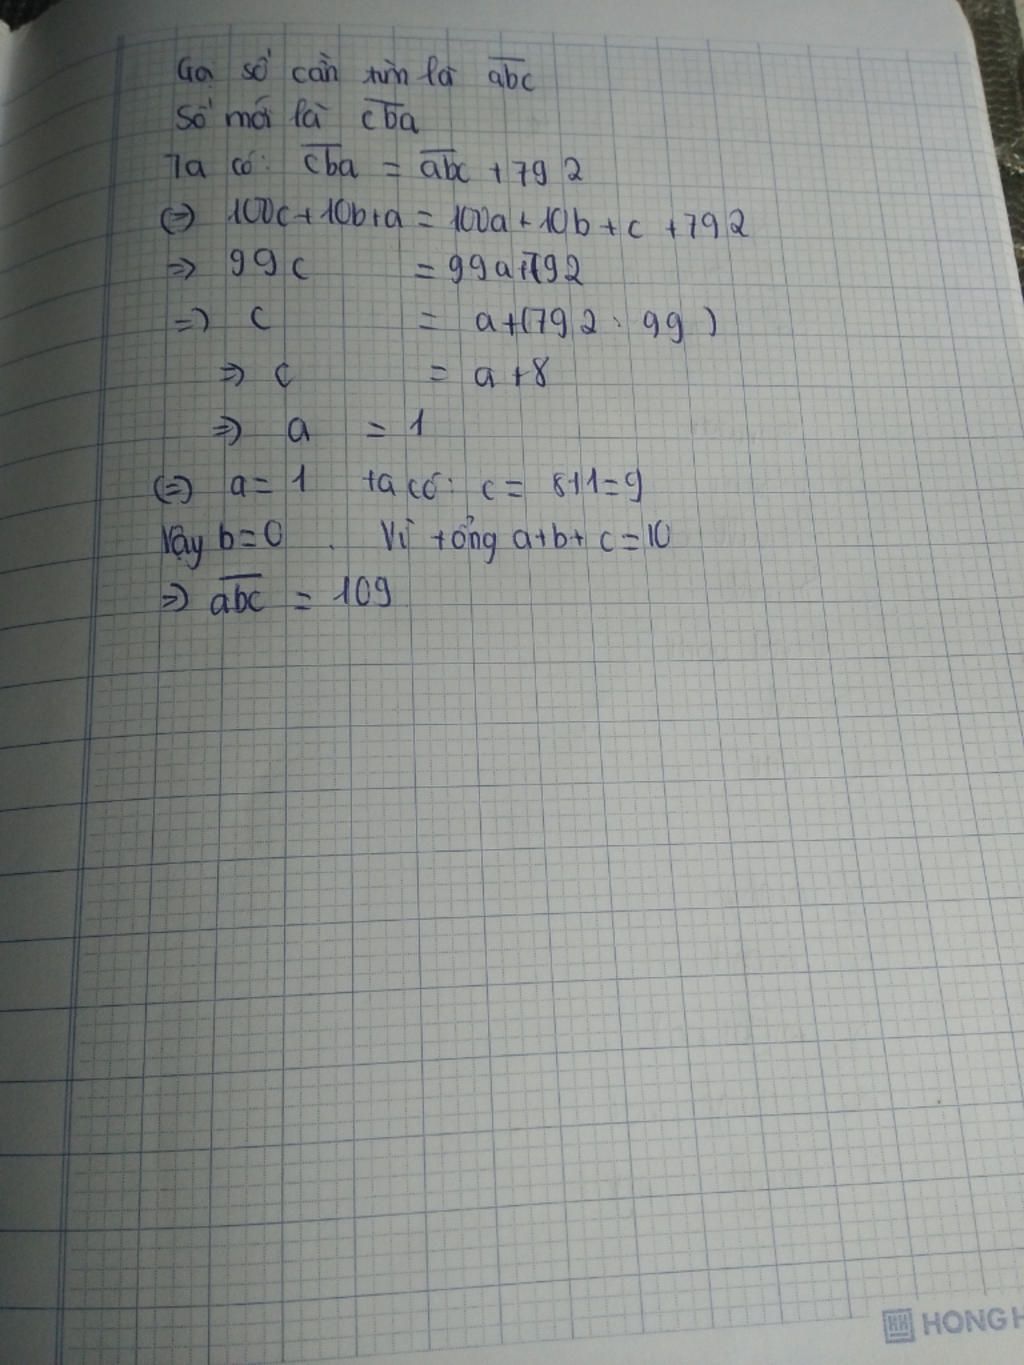 Gọi số cần tìm là abc
Số mới là cba
Ta có: cba = abc + 792
(=) 100c + 10b + a = 100a + 10b + c + 792
=> 99c = 99a + 792
=> c = a + (792 : 99)
=> c = a + 8
=> a = 1
(=) a = 1 ta có: c = 8+1=9
Vậy b=0. Vì tổng a+b+c=10
=> abc = 109
HONG H